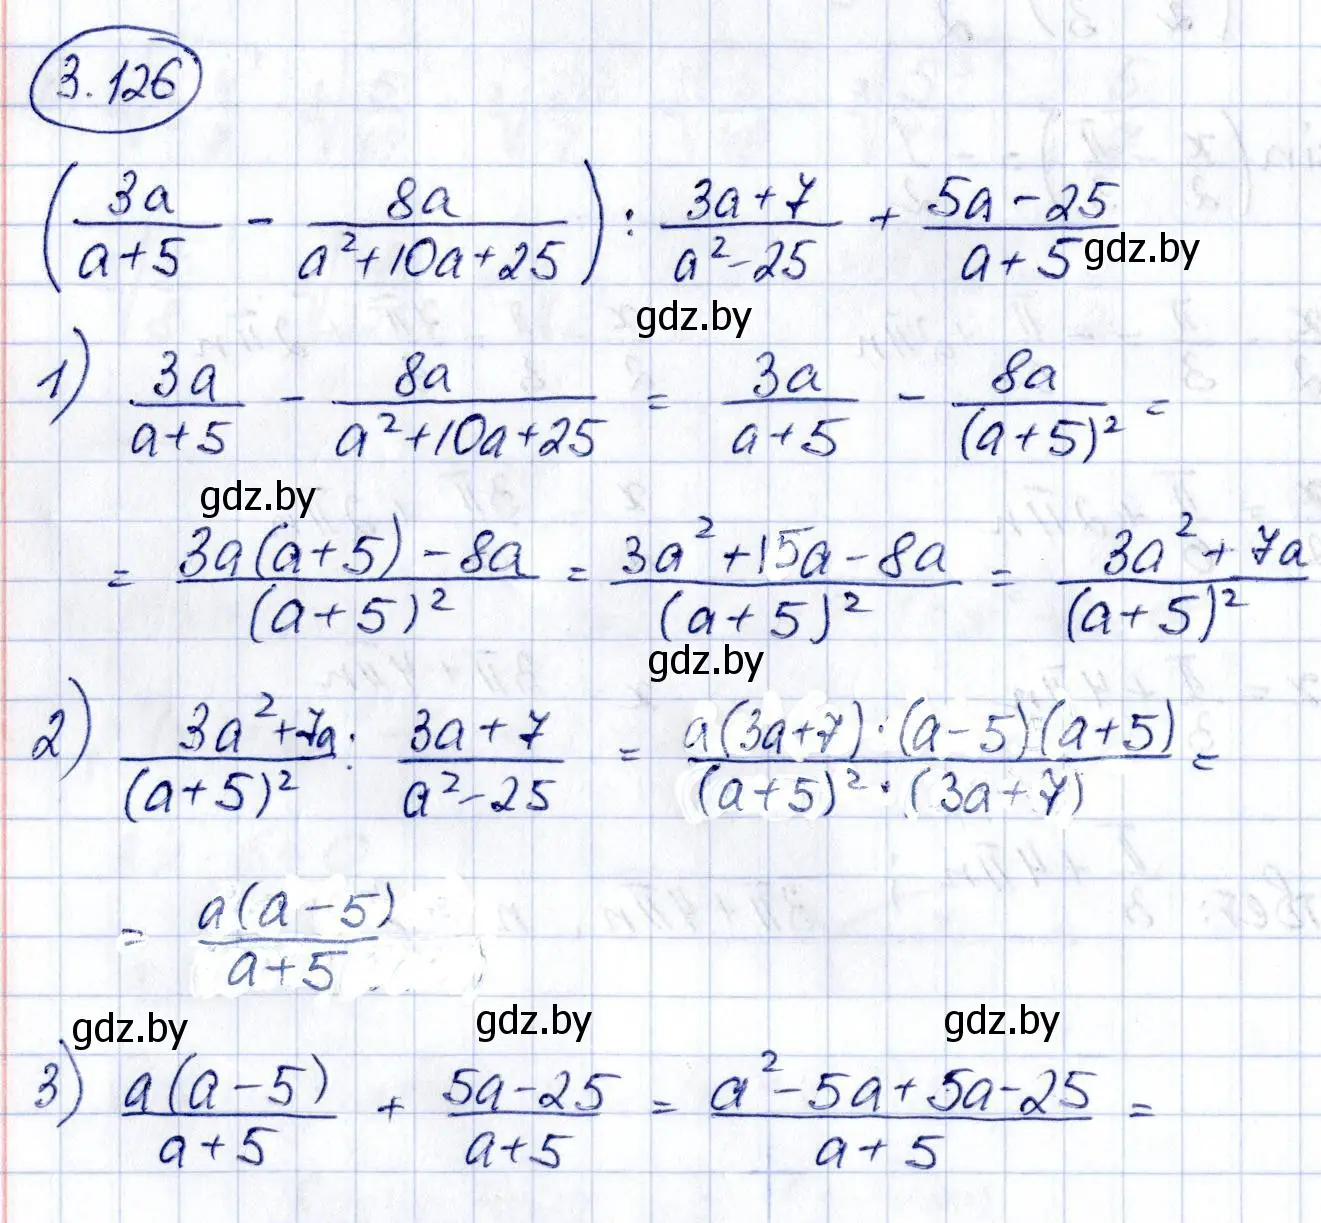 3.126
(3a/(a+5) - 8a/(a²+10a+25)) : (3a+7)/(a²-25) + (5a-25)/(a+5) gdz.by
gdz.by
1) 3a/(a+5) - 8a/(a²+10a+25) = 3a/(a+5) - 8a/(a+5)² =
gdz.by
= (3a(a+5)-8a)/(a+5)² = (3a²+15a-8a)/(a+5)² = (3a²+7a)/(a+5)²
gdz.by
2) (3a²+7a)/(a+5)² : (3a+7)/(a²-25) = (a(3a+7)·(a-5)(a+5))/((a+5)²·(3a+7)) =
= a(a-5)/(a+5)
gdz.by gdz.by gdz.by
3) a(a-5)/(a+5) + (5a-25)/(a+5) = (a²-5a+5a-25)/(a+5) =